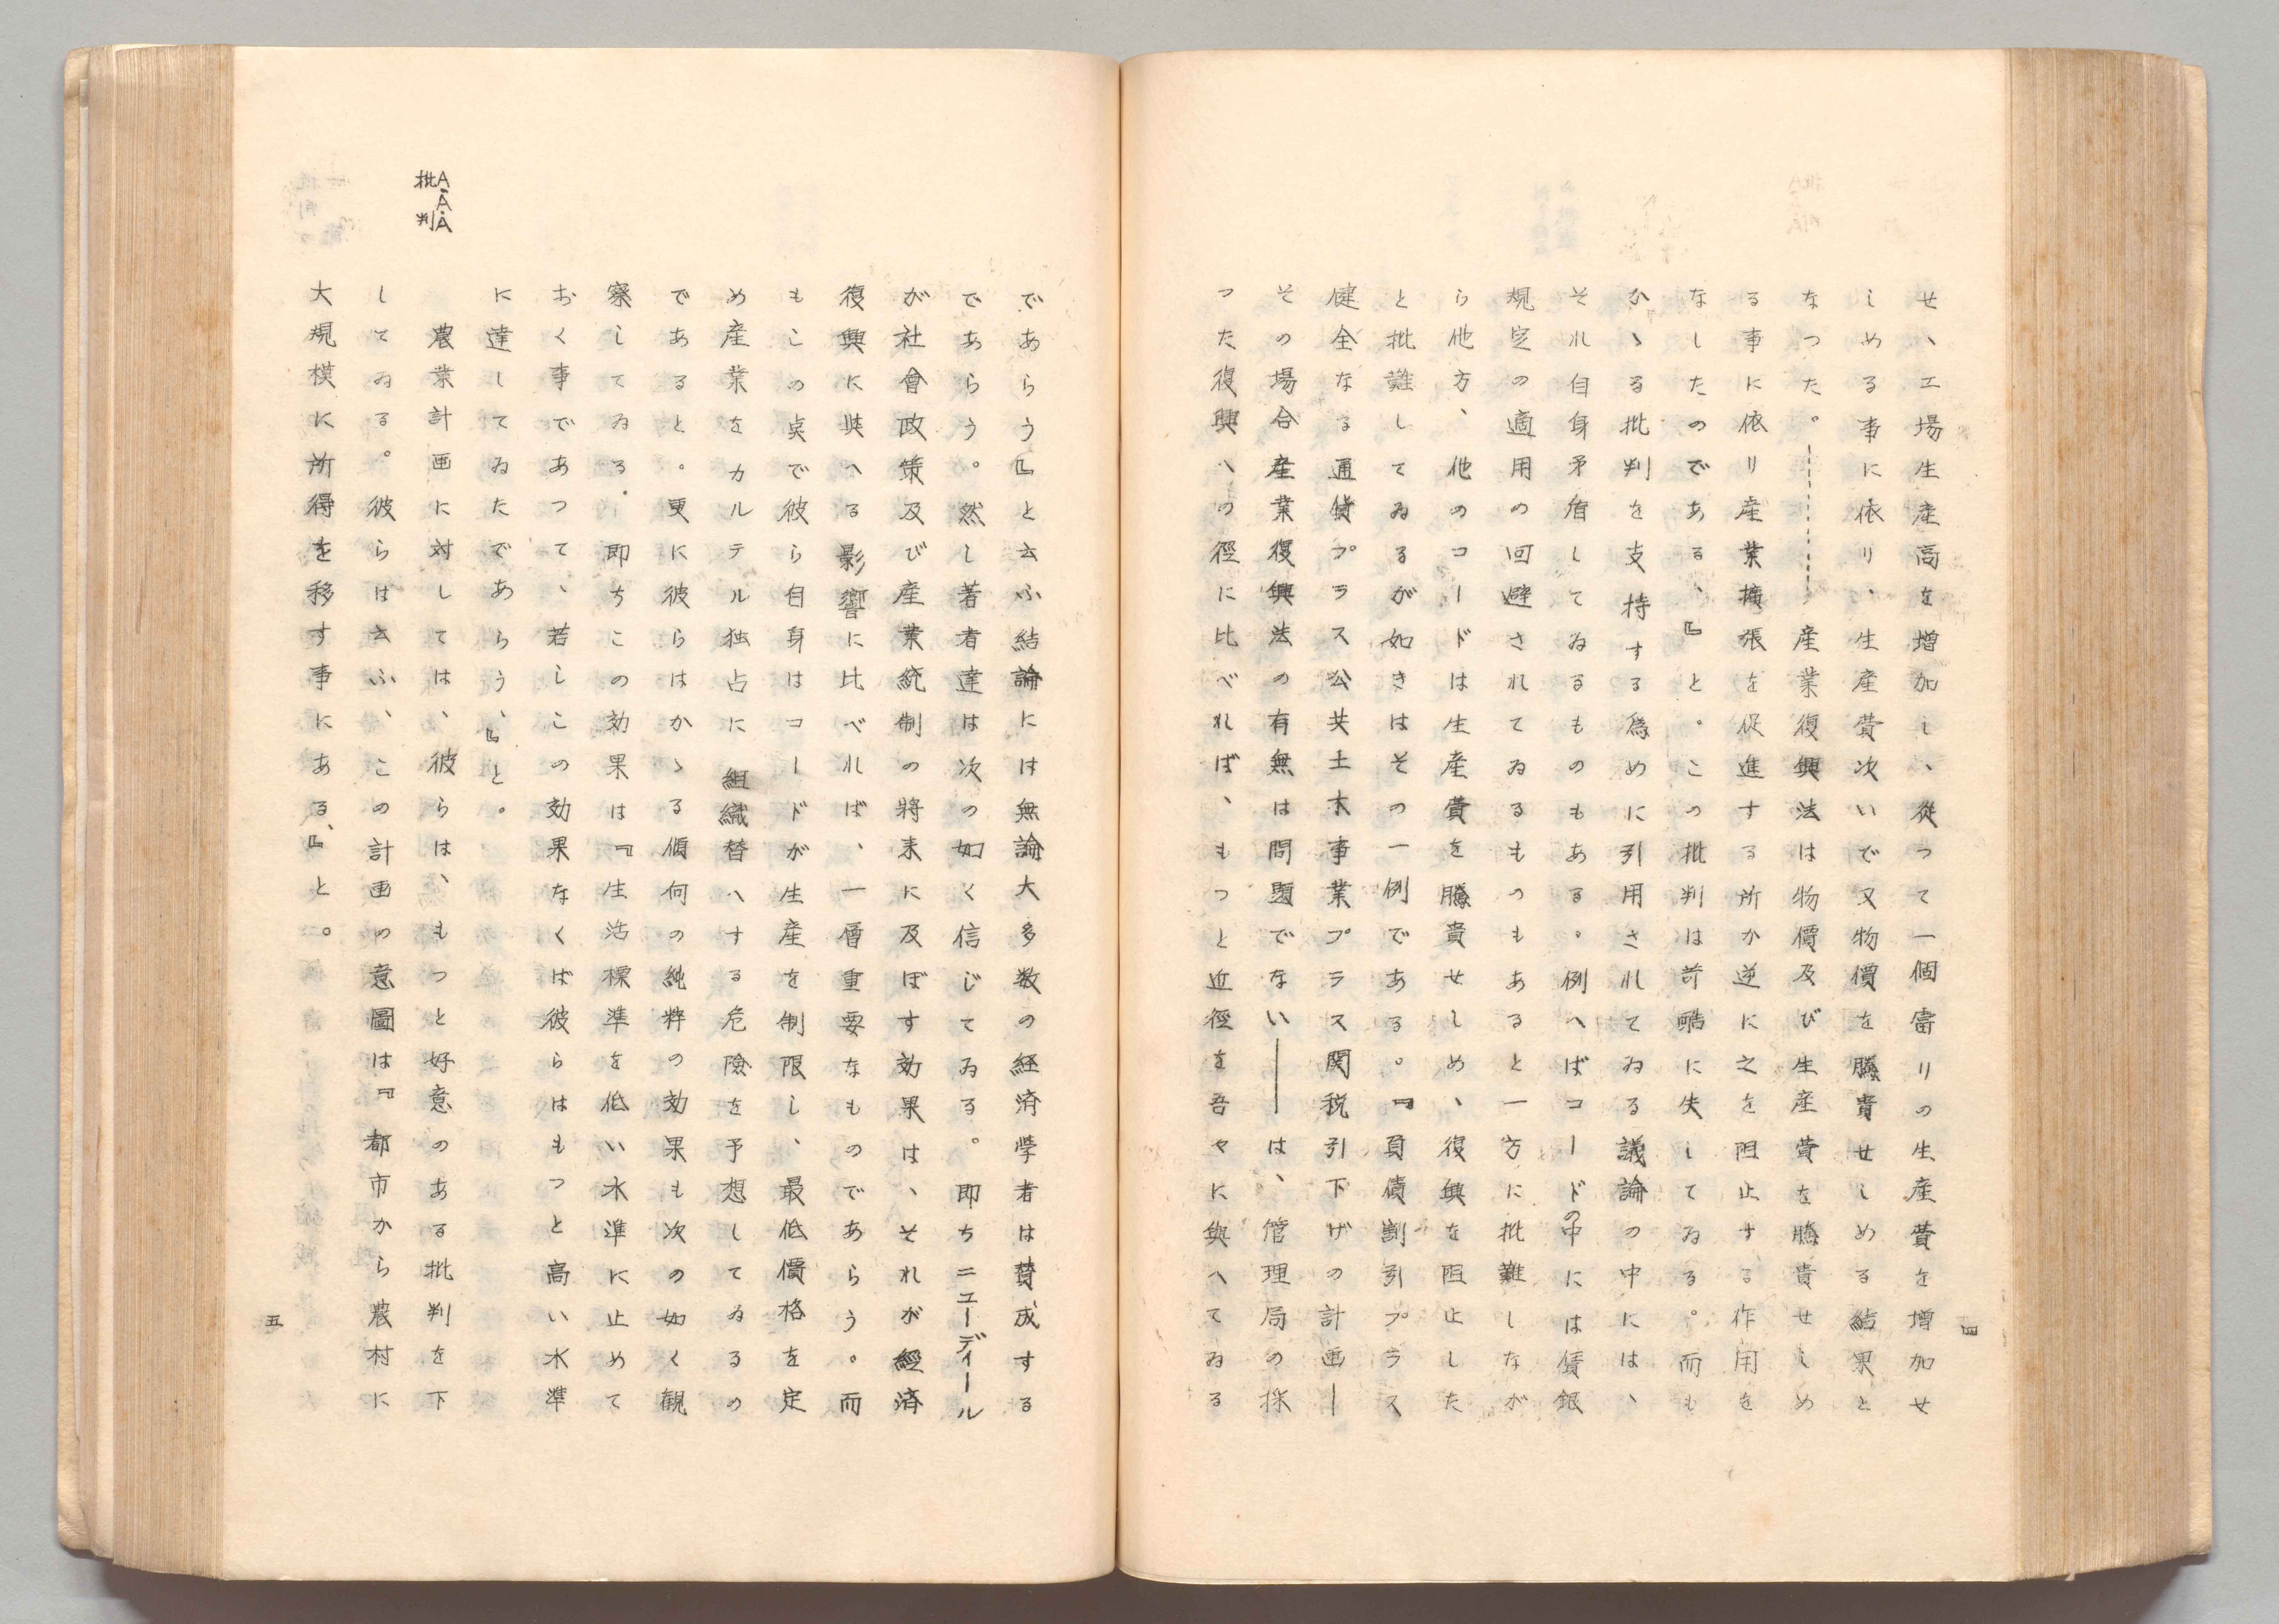 四
せ、工場生産高を増加し、従つて一個当りの生産費を増加せ
しめる事に依り、生産費次いで又物價を騰貴せしめる結果と
なつた。………産業復興法は物價及び生産費を騰貴せしめ
る事に依り産業擴張を促進する所か逆に之を阻止する作用を
なしたのである、』と。この批判は苛酷に失してゐる。而も
かゝる批判を支持する爲めに引用されてゐる議論の中には、
それ自身矛盾してゐるものもある。例へばコードの中には賃銀
規定の適用の回避されてゐるものもあると一方に批難しなが
ら他方、他のコードは生産費を騰貴せしめ、復興を阻止した
と批難してゐるが如きはその一例である。『負債割引プラス
健全なる通貨プラス公共土木事業プラス関税引下げの計画―
その場合産業復興法の有無は問題でない――は、管理局の採
つた復興への径に比べれば、もつと近径を吾々に與へてゐる
であらう』と云ふ結論には無論大多数の経済学者は賛成する
であらう。然し著者達は次の如く信じてゐる。即ちニューディール
が社會政策及び産業統制の將来に及ぼす効果は、それが経済
復興に與へる影響に比べれば、一層重要なものであらう。而
もこの点で彼ら自身はコードが生産を制限し、最低價格を定
め産業をカルテル独占に組織替へする危險を予想してゐるの
であると。更に彼らはかゝる傾向の純粋の効果も次の如く観
察してゐる。即ちこの効果は『生活標準を低い水準に止めて
おく事であつて、若しこの効果なくば彼らはもつと高い水準
に達してゐたであらう、』と。
A.A.A.
批判
農業計画に対しては、彼らは、もつと好意のある批判を下
してゐる。彼らは云ふ、この計画の意圖は『都市から農村に
大規模に所得を移す事にある、』と。
五